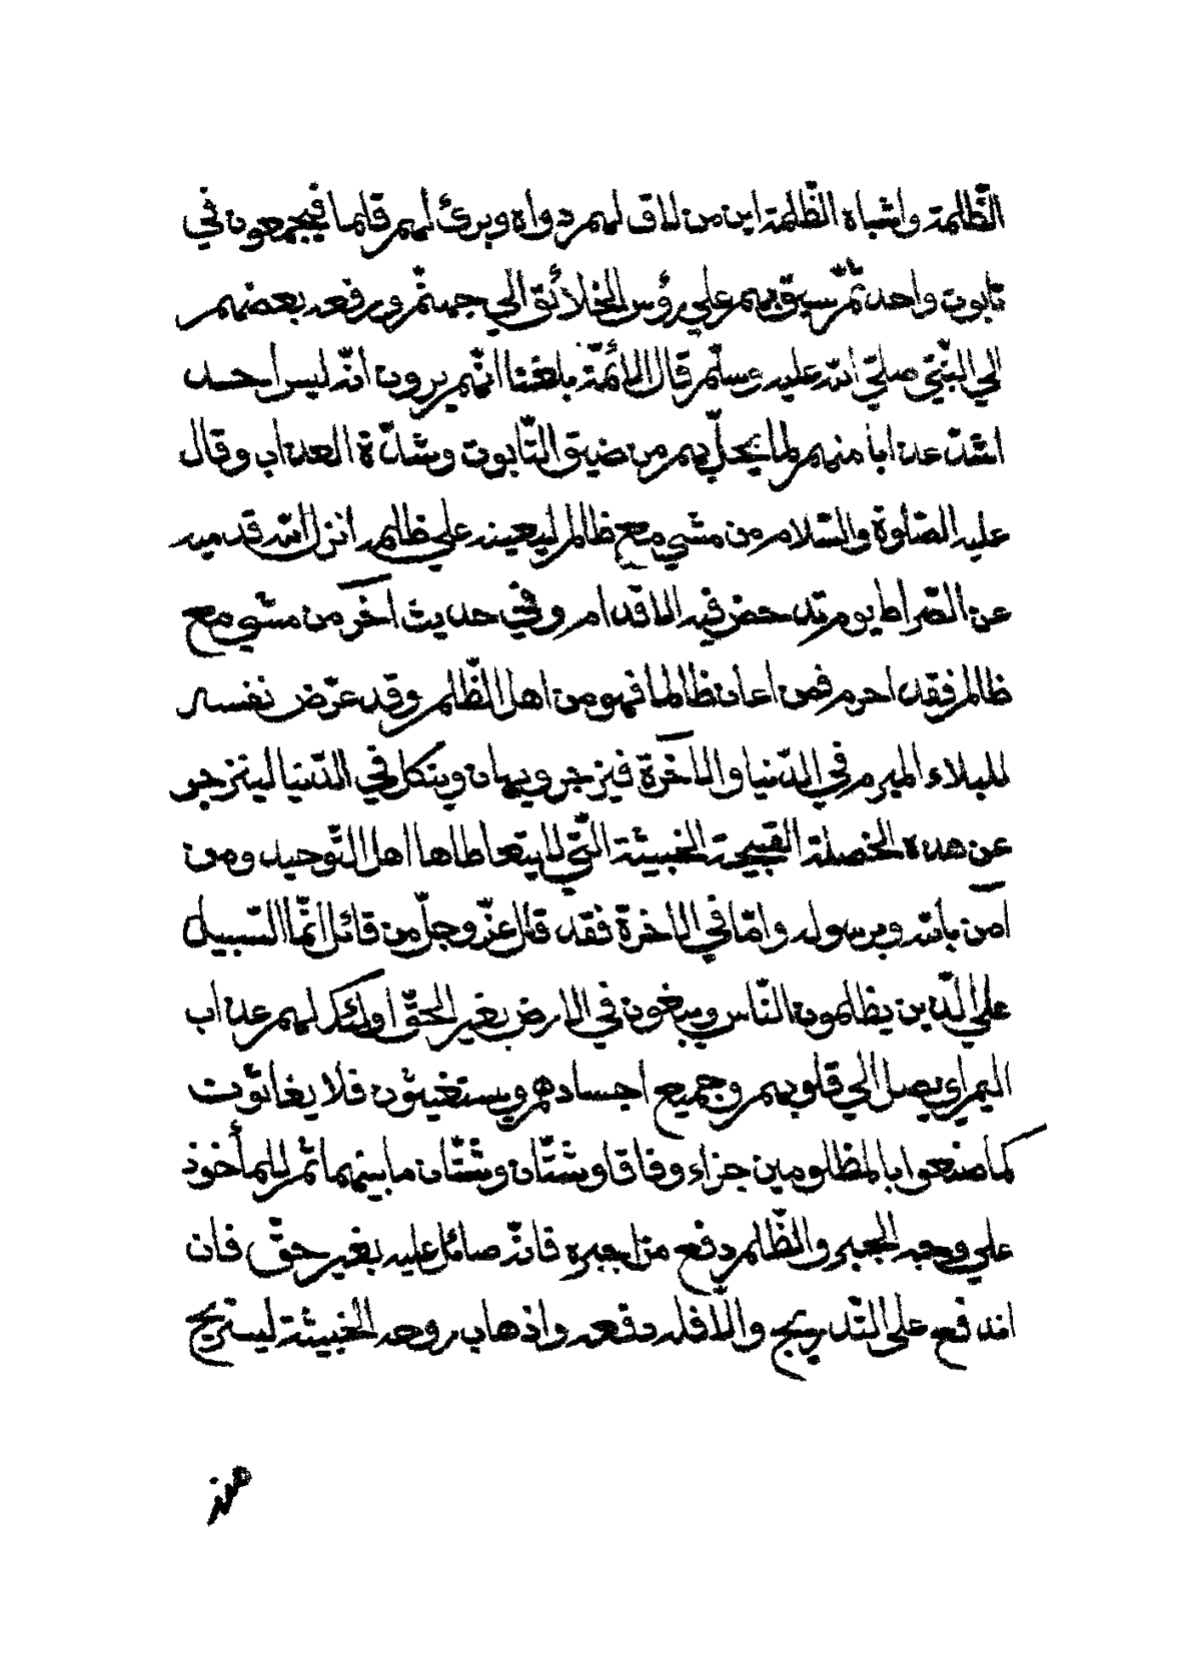 الظّالمة واشباه الظّالمة اين من لاق لهم دواة وبرئ لهم قلما فيجمعون في
تابوت واحد ثمّ سيق بهم علي رؤس الخلائق الي جهنّم ورفعه بعضهم
الي النبّي صلّي الله عليه وسلّم قال الائمّة بلغنا انّهم يرون انّه ليس احد
اشدّ عذاباً منهم لما يحلّ بهم من ضيق التّابوت وشدّة العذاب وقال
عليه الصّلوة والسّلام من مشي مع ظالم ليعينه علي ظلمه انزل الله قدميه
عن الصّراط يوم تدحض فيه الاقدام وفي حديث آخر من مشي مع
ظالم فقد احرم فمن اعان ظالما فهو من اهل الظّلم وقد عرّض نفسه
للبلاء المبرم في الدّنيا والآخرة فيزجر ويهان وينكل في الدّنيا لينزجر
عن هذه الخصلة القبيحة الخبيثة الّتي لا يتعاطاها اهل التّوحيد ومن
آمن بالله وبرسوله وامّا في الاخرة فقد قال عزّ وجلّ من قائل انّما السّبيل
علي الّذين يظلمون النّاس ويبغون في الارض بغير الحقّ اولئك لهم عذاب
اليم اي يصل الي قلوبهم وجميع اجسادهم ويستغيثون فلا يغاثون
كما صنعوا بالمظلومين جزاء وفاقا وشتّان وشتّان ما بينهما ثم للمأخوذ
علي وجه الجبر والظّلم دفع من اجبره فانّه صائل عليه بغير حقّ فان
اندفع علي التّدريج والّا فله دفعه واذهاب روحه الخبيثة ليستريح